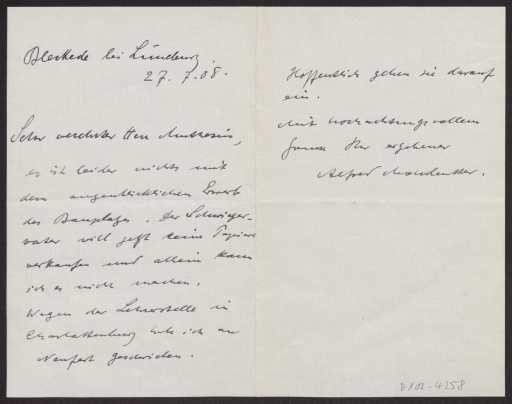 Bleckede bei Lüneburg.
27. 7. 08.
Sehr verehrter Herr Muthesius,
es ist leider nichts mit
dem augenblicklichen Erwerb
des Bauplatzes. Der Schwieger-
vater will jetzt keine Papiere
verkaufen und allein kann
ich es nicht machen.
Wegen der Lehrerstelle in
Charlottenburg habe ich an
geschrieben.
Hoffentlich gehen sie darauf
ein.
Mit hochachtungsvollem
Gruss Ihr ergebener
Alfred
D 102-4258